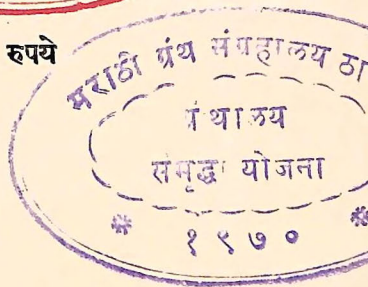 रुपये
मराठी ग्रंथ संग्रहालय ठा
ग्रंथालय
समृद्धी योजना
१९७०